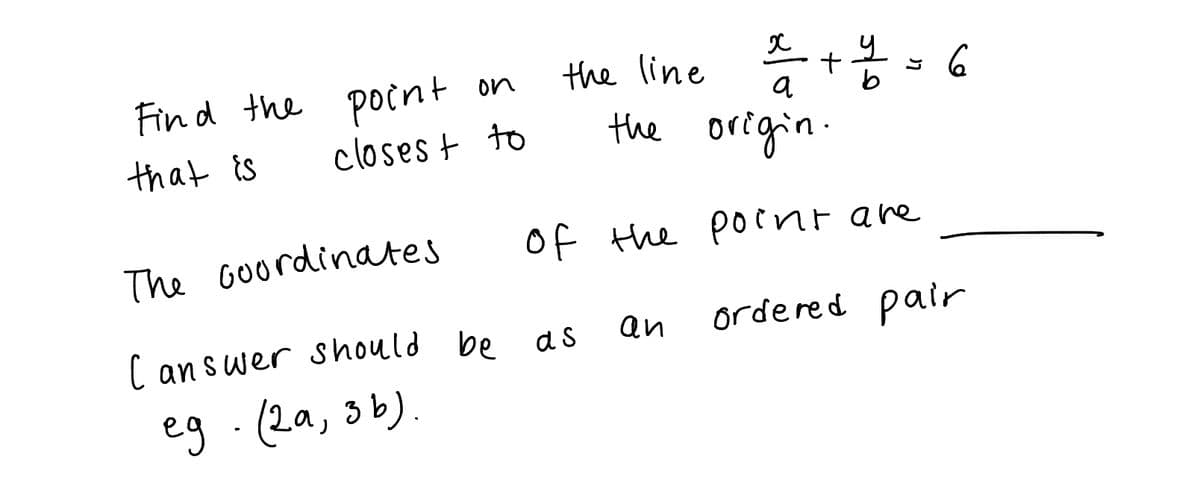 Find the point on the line x/a + y/b = 6
that is closest to the origin.
The coordinates of the point are ______
( answer should be as an ordered pair
eg . (2a, 3b).